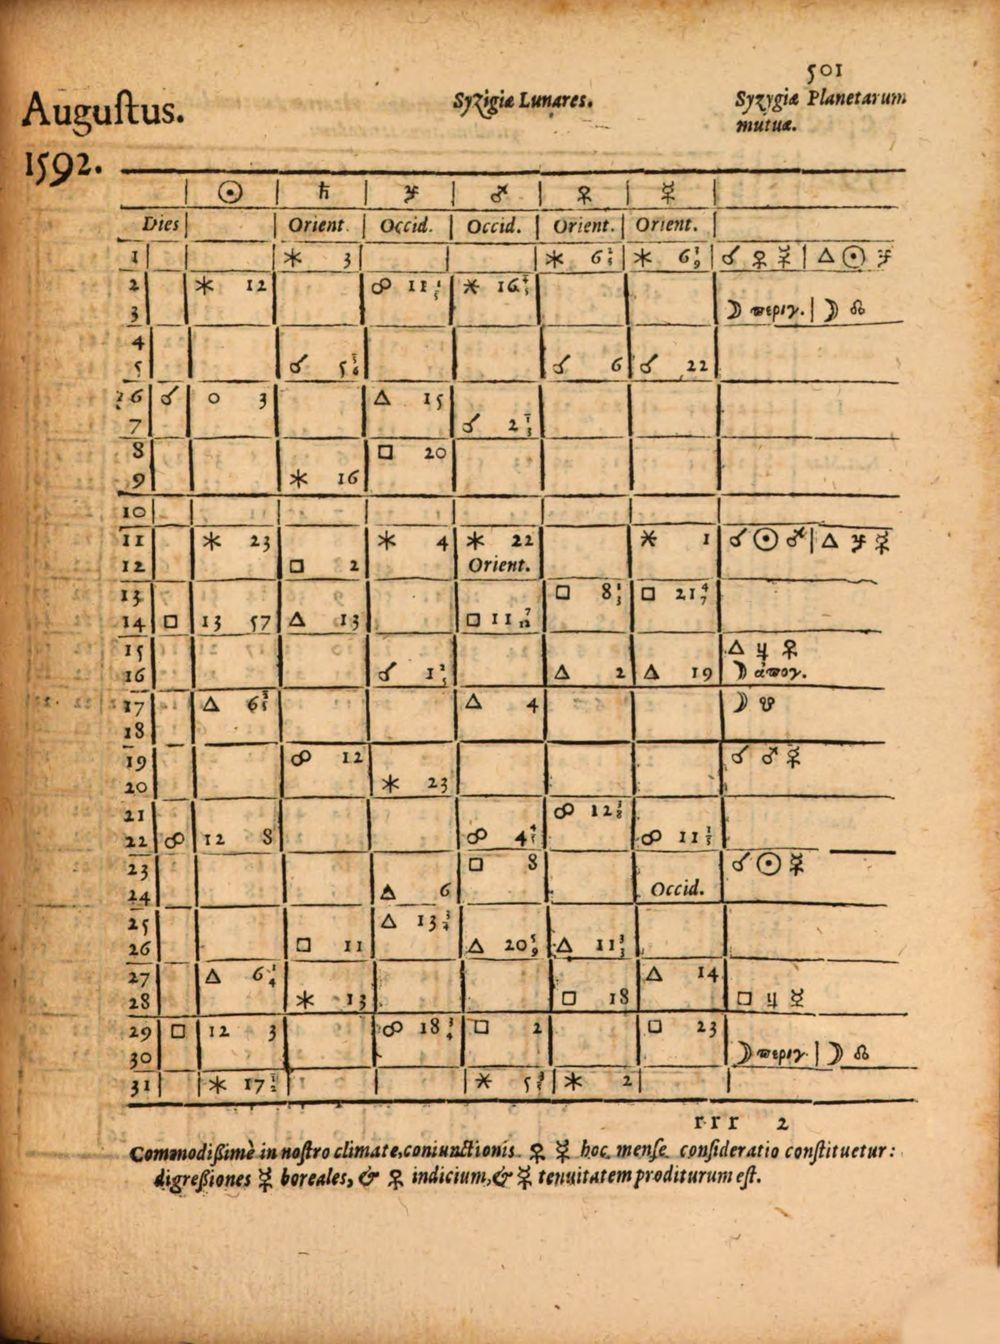 501
Auguſtus. Syzigiæ Lunares. Syzygiæ Planetarum
mutuæ.
1592.
☉ ♄ ♃ ♂ ♀ ☿
Dies Orient. Occid. Occid. Orient. Orient.
1 ⚹ 3 ⚹ 6 ⚹ 6 ☌ ♀ ☿ | △ ☉ ♃
2 ⚹ 12 ☍ 11 ⚹ 16
3 ☽ περιγ. | ☽ ☊
4
5 ☌ 5 ☌ 6 ☌ 22
6 ☌ 0 3 △ 15
7 ☌ 2
8 □ 20
9 ⚹ 16
10
11 ⚹ 23 ⚹ 4 ⚹ 22 ⚹ 1 ☌ ☉ ♂ | △ ♃ ☿
12 □ 2 Orient.
13 □ 8 □ 21
14 □ 13 57 △ 13 □ 11
15 △ ♃ ♀
16 ☌ 1 △ 2 △ 19 ☽ ἀπογ.
17 △ 6 △ 4 ☽ ☋
18
19 ☍ 12 ☌ ♂ ☿
20 ⚹ 23
21 ☍ 12
22 ☍ 12 8 ☍ 4 ☍ 11
23 □ 8 ☌ ☉ ☿
24 △ 6 Occid.
25 △ 13
26 □ 11 △ 20 △ 11
27 △ 6 △ 14
28 ⚹ 13 □ 18 □ ♃ ☿
29 □ 12 3 ☍ 18 □ 2 □ 23
30 ☽ περιγ. | ☽ ☊
31 ⚹ 17 ⚹ 5 ⚹ 2
rrr 2
Commodißimè in noſtro climate, coniunctionis ♀ ☿ hoc menſe conſideratio conſtituetur:
digreßiones ☿ boreales, & ♀ indicium, & ☿ tenuitatem proditurum eſt.